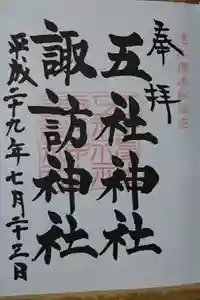 奉拝
五社神社
諏訪神社
平成二十九年七月二十三日